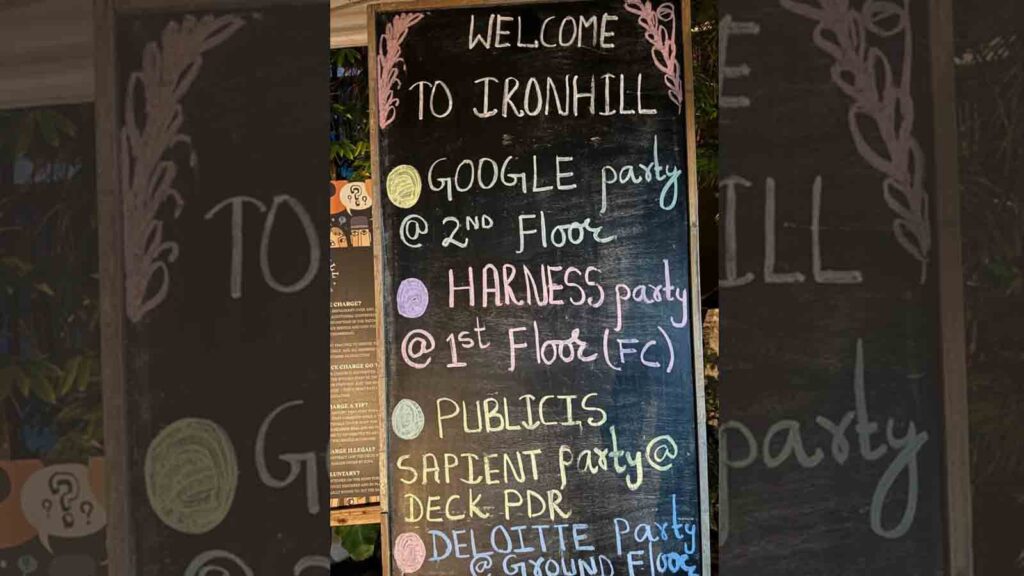 WELCOME
TO IRONHILL
GOOGLE party
@ 2ND Floor
HARNESS party
@ 1st Floor (FC)
PUBLICIS
SAPIENT party @
DECK PDR
DELOITTE party
@ GROUND Floor
CHARGE?
CHARGE A TIP?
ILLEGAL?